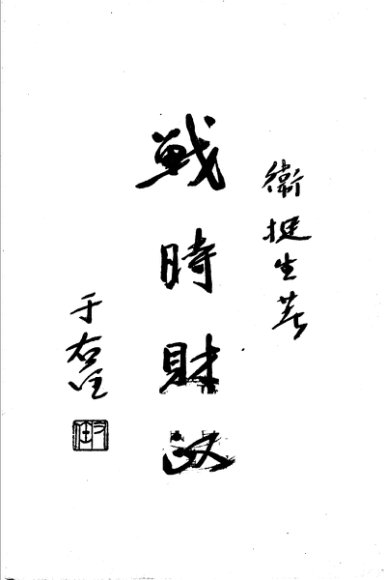 衛挺生著
戰時財政
于右任
右任